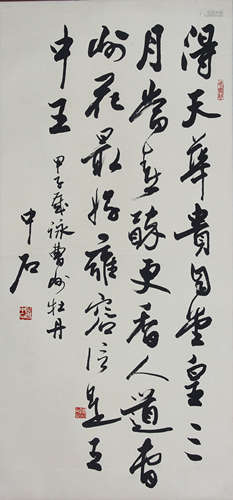 得天华贵自堂皇三
月当春醉更香人道曹
州花最好雍容信是王
中王
甲子岁咏曹州牡丹
中石